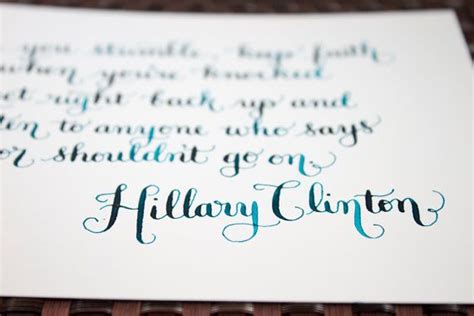 you stumble, keep faith
when you're knocked
right back up and
to anyone who says
or shouldn't go on.
Hillary Clinton